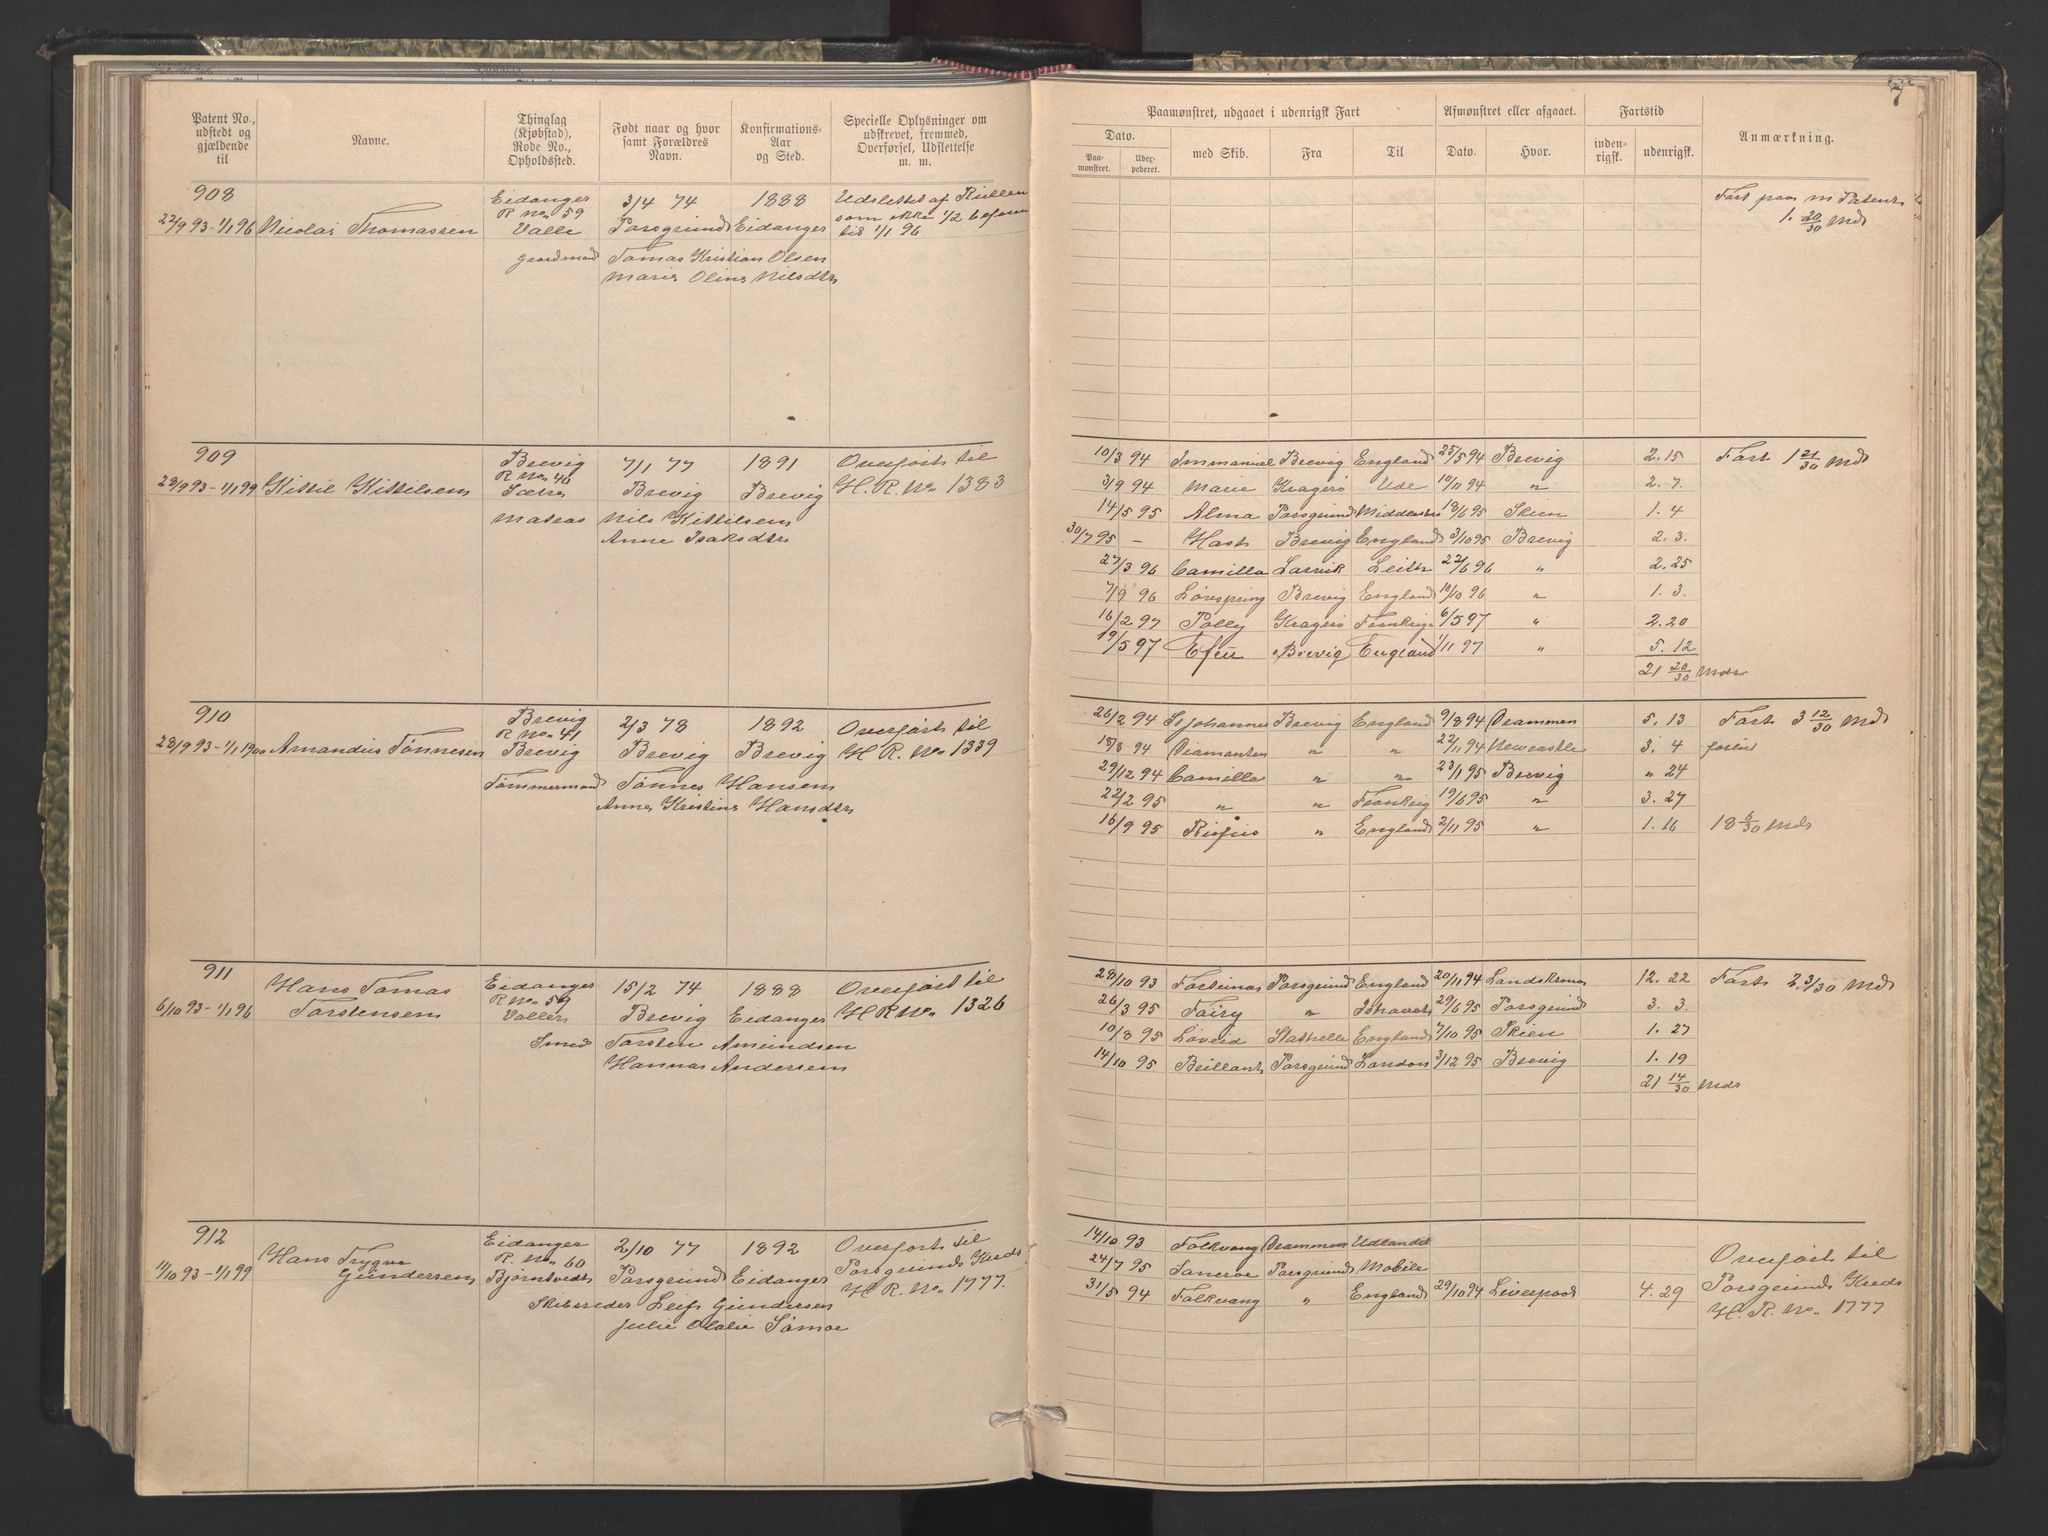 Patent No., udstedt og gjældende til
Navne.
Thinglag (Kjøbstad), Rode No., Opholdssted.
Født naar og hvor samt Forældres Navn.
Konfirmations-Aar og Sted.
Specielle Oplysninger om udskrevet, fremmed, Overførsel, Udslettelse m. m.
908
Eidanger 3/4 74 1888 Udslettet af Rullen
R No. 59 som ikke 1/2 befaren
22/9 93-1/1 96 Nicolai Thomassen Valle Porsgrund Eidanger til 1/1 96
gaardmand Tomas Kristian Olsen
Marie Oline Nilsdtr
909
Brevig 7/1 77 1891 Overført til
R No. 40
28/9 93-1/1 99 Kittil Kittilsen Sætre Brevig Brevig H. R. No. 1383
Matros Nils Kittilsen
Anne Isaksdtr
910
Brevig 2/3 78 1892 Overført til
R No. 41
28/9 93-1/1 1900 Amandus Tønnesen Brevig Brevig Brevig H R. No. 1339
Tømmermand Tønnes Hansen
Anne Kristine Hansdtr
911
Hans Tomas Eidanger 15/2 74 1888 Overført til
R No. 59
6/10 93-1/1 96 Torstensen Vallen Brevig Eidanger H R No. 1326
Smed Torsten Amundsen
Hanna Andersen
912
Hans Trygve Eidanger 2/10 77 1892 Overført til
R. No. 60 Porsgrunds Kreds
11/10 93-1/1 99 Gundersen Bjørntvedt Porsgrund Eidanger H R. No. 1777.
Skibsreder Leif Gundersen
Julie Olalie
7
Paamønstret, udgaaet i udenrigsk Fart
Afmønstret eller afgaaet.
Fartstid
Anmærkning.
Dato.
Paamønstret. Udexpederet.
med Skib. Fra Til Dato. Hvor. indenrigsk. udenrigsk.
Fart paa m Patent
1. 20/30 Mdr
10/3 94 Immanuel Brevig England 25/5 94 Brevig 2. 15 Fart 1 21/30 Mdr
3/9 94 Marie Kragerø Ude 10/11 94 " 2. 7.
14/5 95 Alma Porsgrund 18/6 95 Skien 1. 4
30/7 95 - Brevig England 3/10 95 Brevig 2. 3.
27/3 96 Camilla Larvik Leith 22/6 96 " 2. 25
7/9 96 Løvspring Brevig England 10/10 96 " 1. 3.
16/2 97 Polly Kragerø Frankrig 6/5 97 " 2. 20
19/5 97 Brevig England 1/11 97 " 5. 12
21 20/30 Mdr
26/2 94 St Johannes Brevig England 9/8 94 Drammen 5. 13 Fart 3 12/30 Md
18/8 94 Diamanten " " 22/11 94 Newcastle 3. 4
29/12 94 Camilla " " 23/1 95 Brevig " 24
22/2 95 " " Frankrig 19/6 95 " 3. 27
16/9 95 Rufus " England 2/11 95 " 1. 16 18 6/30 Mdr
28/10 93 Fortuna Porsgrund England 20/11 94 Landskrona 12. 22 Fart 2. 3/30 Md
26/3 95 Fairy " 29/6 95 Porsgrund 3. 3.
10/8 95 Løveid Stathelle England 7/10 95 Skien 1. 27
14/10 95 Brillant Porsgrund London 3/12 95 Brevig 1. 19
21 14/30 Mdr
14/10 93 Folkvang Drammen Udlandet
24/7 95 Porsgrund Mobile
31/5 94 Folkvang " England 29/10 94 Liverpool 4. 29
Overført til
Porsgrunds Kreds
H. R. No. 1777